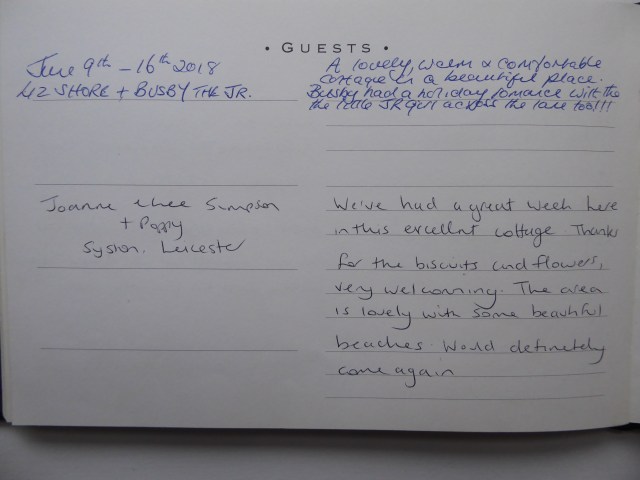 • GUESTS •
June 9th - 16th 2018
LIZ SHORE + BUSBY THE JR.
A lovely, warm & comfortable
cottage in a beautiful place.
Busby had a holiday romance with the
the little JR girl across the lane too!!!
Joanne Lee Simpson
+ Poppy
Syston. Leicester
We've had a great week here
in this excellnt cottage Thanks
for the biscuits and flowers,
very welcoming. The area
is lovely with some beautiful
beaches. Would definetely
come again